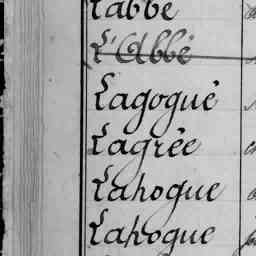 Labbé
L'Abbé
Lagogué
Lagrée
Lahogue
Lahogue